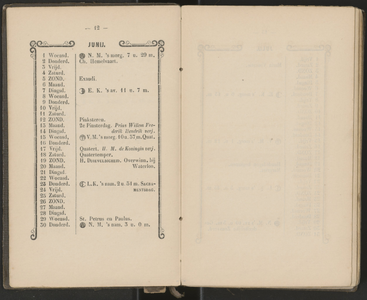 — 12 —
JUNIJ.
1 Woensd. N. M. 's morg. 7 u. 29 m.
2 Donderd. Ch. Hemelvaart.
3 Vrijd.
4 Zaturd.
5 ZOND. Exaudi.
6 Maand.
7 Dingsd. E. K. 's av. 11 u. 7 m.
8 Woensd.
9 Donderd.
10 Vrijd.
11 Zaturd.
12 ZOND. Pinksteren.
13 Maand. 2e Pinksterdag. Prins Willem Fre-
14 Dingsd. derik Hendrik verj.
15 Woensd. V. M. 's morg. 10u. 57m. Quat.
16 Donderd.
17 Vrijd. Quatert. H. M. de Koningin verj.
18 Zaturd. Quatertemper.
19 ZOND. H. Drievuldigheid. Overwinn. bij
20 Maand. Waterloo.
21 Dingsd.
22 Woensd.
23 Donderd. L. K. 's nam. 2 u. 34 m. Sacra-
24 Vrijd. mentsdag.
25 Zaturd.
26 ZOND.
27 Maand.
28 Dingsd.
29 Woensd. St. Petrus en Paulus.
30 Donderd. N. M. 's nam. 5 u. 0 m.